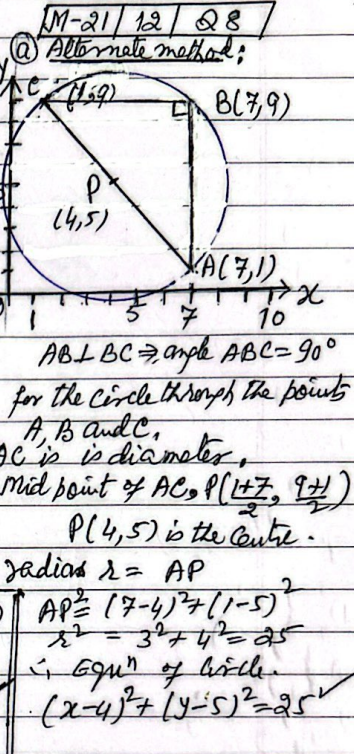 M-21/12/Q8
(a) Alternate method:
y
C (1,9) B(7,9)
P
(4,5)
A(7,1)
x
1 5 7 10
AB⊥BC ⇒ angle ABC = 90°
for the circle through the points
A, B and C,
AC is is diameter.
Mid point of AC, P(1+7/2, 9+1/2)
P(4,5) is the centre.
radias r = AP
AP² = (7-4)² + (1-5)²
r² = 3² + 4² = 25
∴ Equⁿ of Circle.
(x-4)² + (y-5)² = 25 ✓